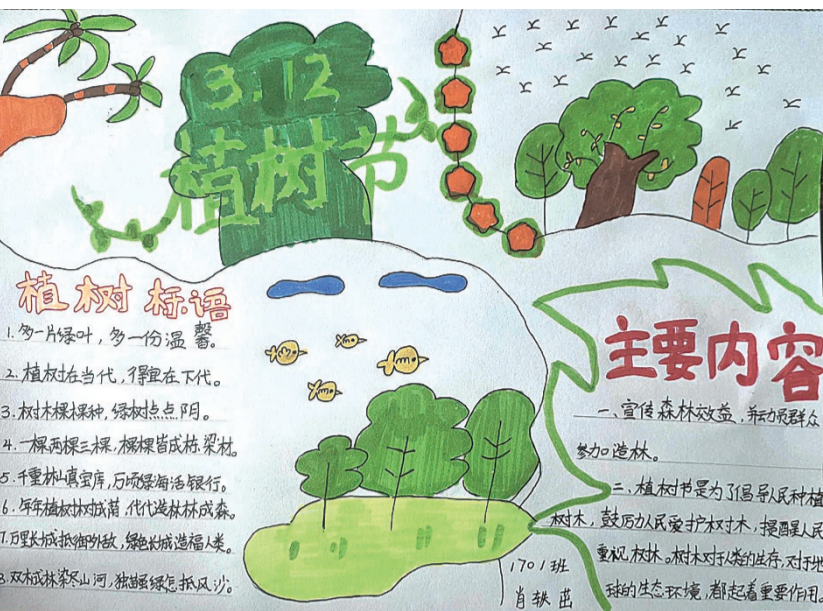 3.12
植树节
植树标语
1.多一片绿叶，多一份温馨。
2.植树在当代，得宜在下代。
3.树木棵棵种，绿树点点阴。
4.一棵两棵三棵，棵棵皆成栋梁材。
5.千重林山真宝库，万顷绿海活银行。
6.年年植树树成荫，代代造林林成森。
7.万里长城抵御外敌，绿色长城造福人类。
8.双木成林染尽山河，独苗绿怎抵风沙。
主要内容
一、宣传森林效益，并动员群众
参加造林。
二、植树节是为了倡导人民种植
树木，鼓励人民爱护树木，提醒人民
重视树林。树木对于人类的生存，对于地
球的生态环境，都起着重要作用。
1701班
肖轶